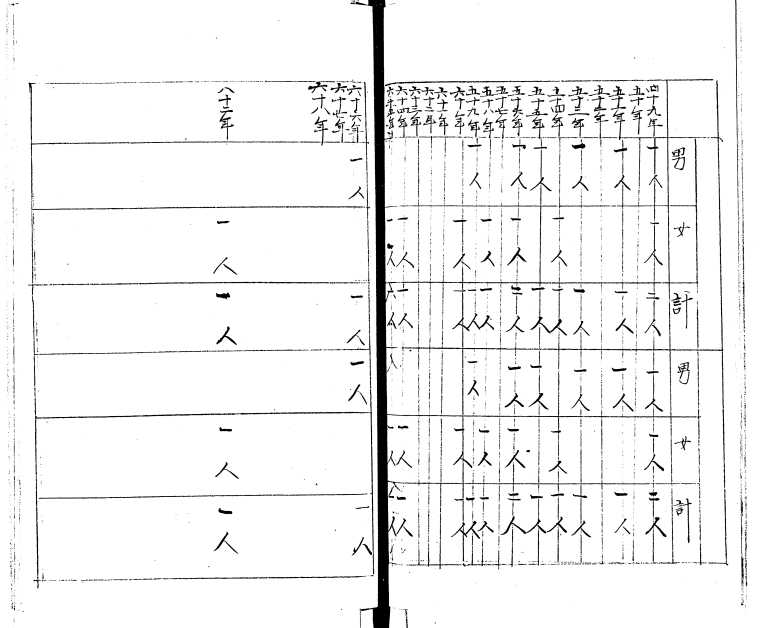 男 女 計 男 女 計
四十九年 一人 一人 二人 一人 一人 二人
五十年
五十一年 一人 一人 一人 一人
五十二年
五十三年 一人 一人 一人 一人
五十四年 一人 一人 一人 一人
五十五年 一人 一人 一人 一人
五十六年 一人 一人 二人 一人 一人 二人
五十七年
五十八年 一人 一人 一人 一人
五十九年 一人 一人 一人 一人
六十年 一人 一人 一人 一人
六十一年
六十二年
六十三年
六十四年 一人 一人 一人 一人
六十六年 一人 一人 一人 一人
六十七年
六十八年
八十二年 一人 一人 一人 一人